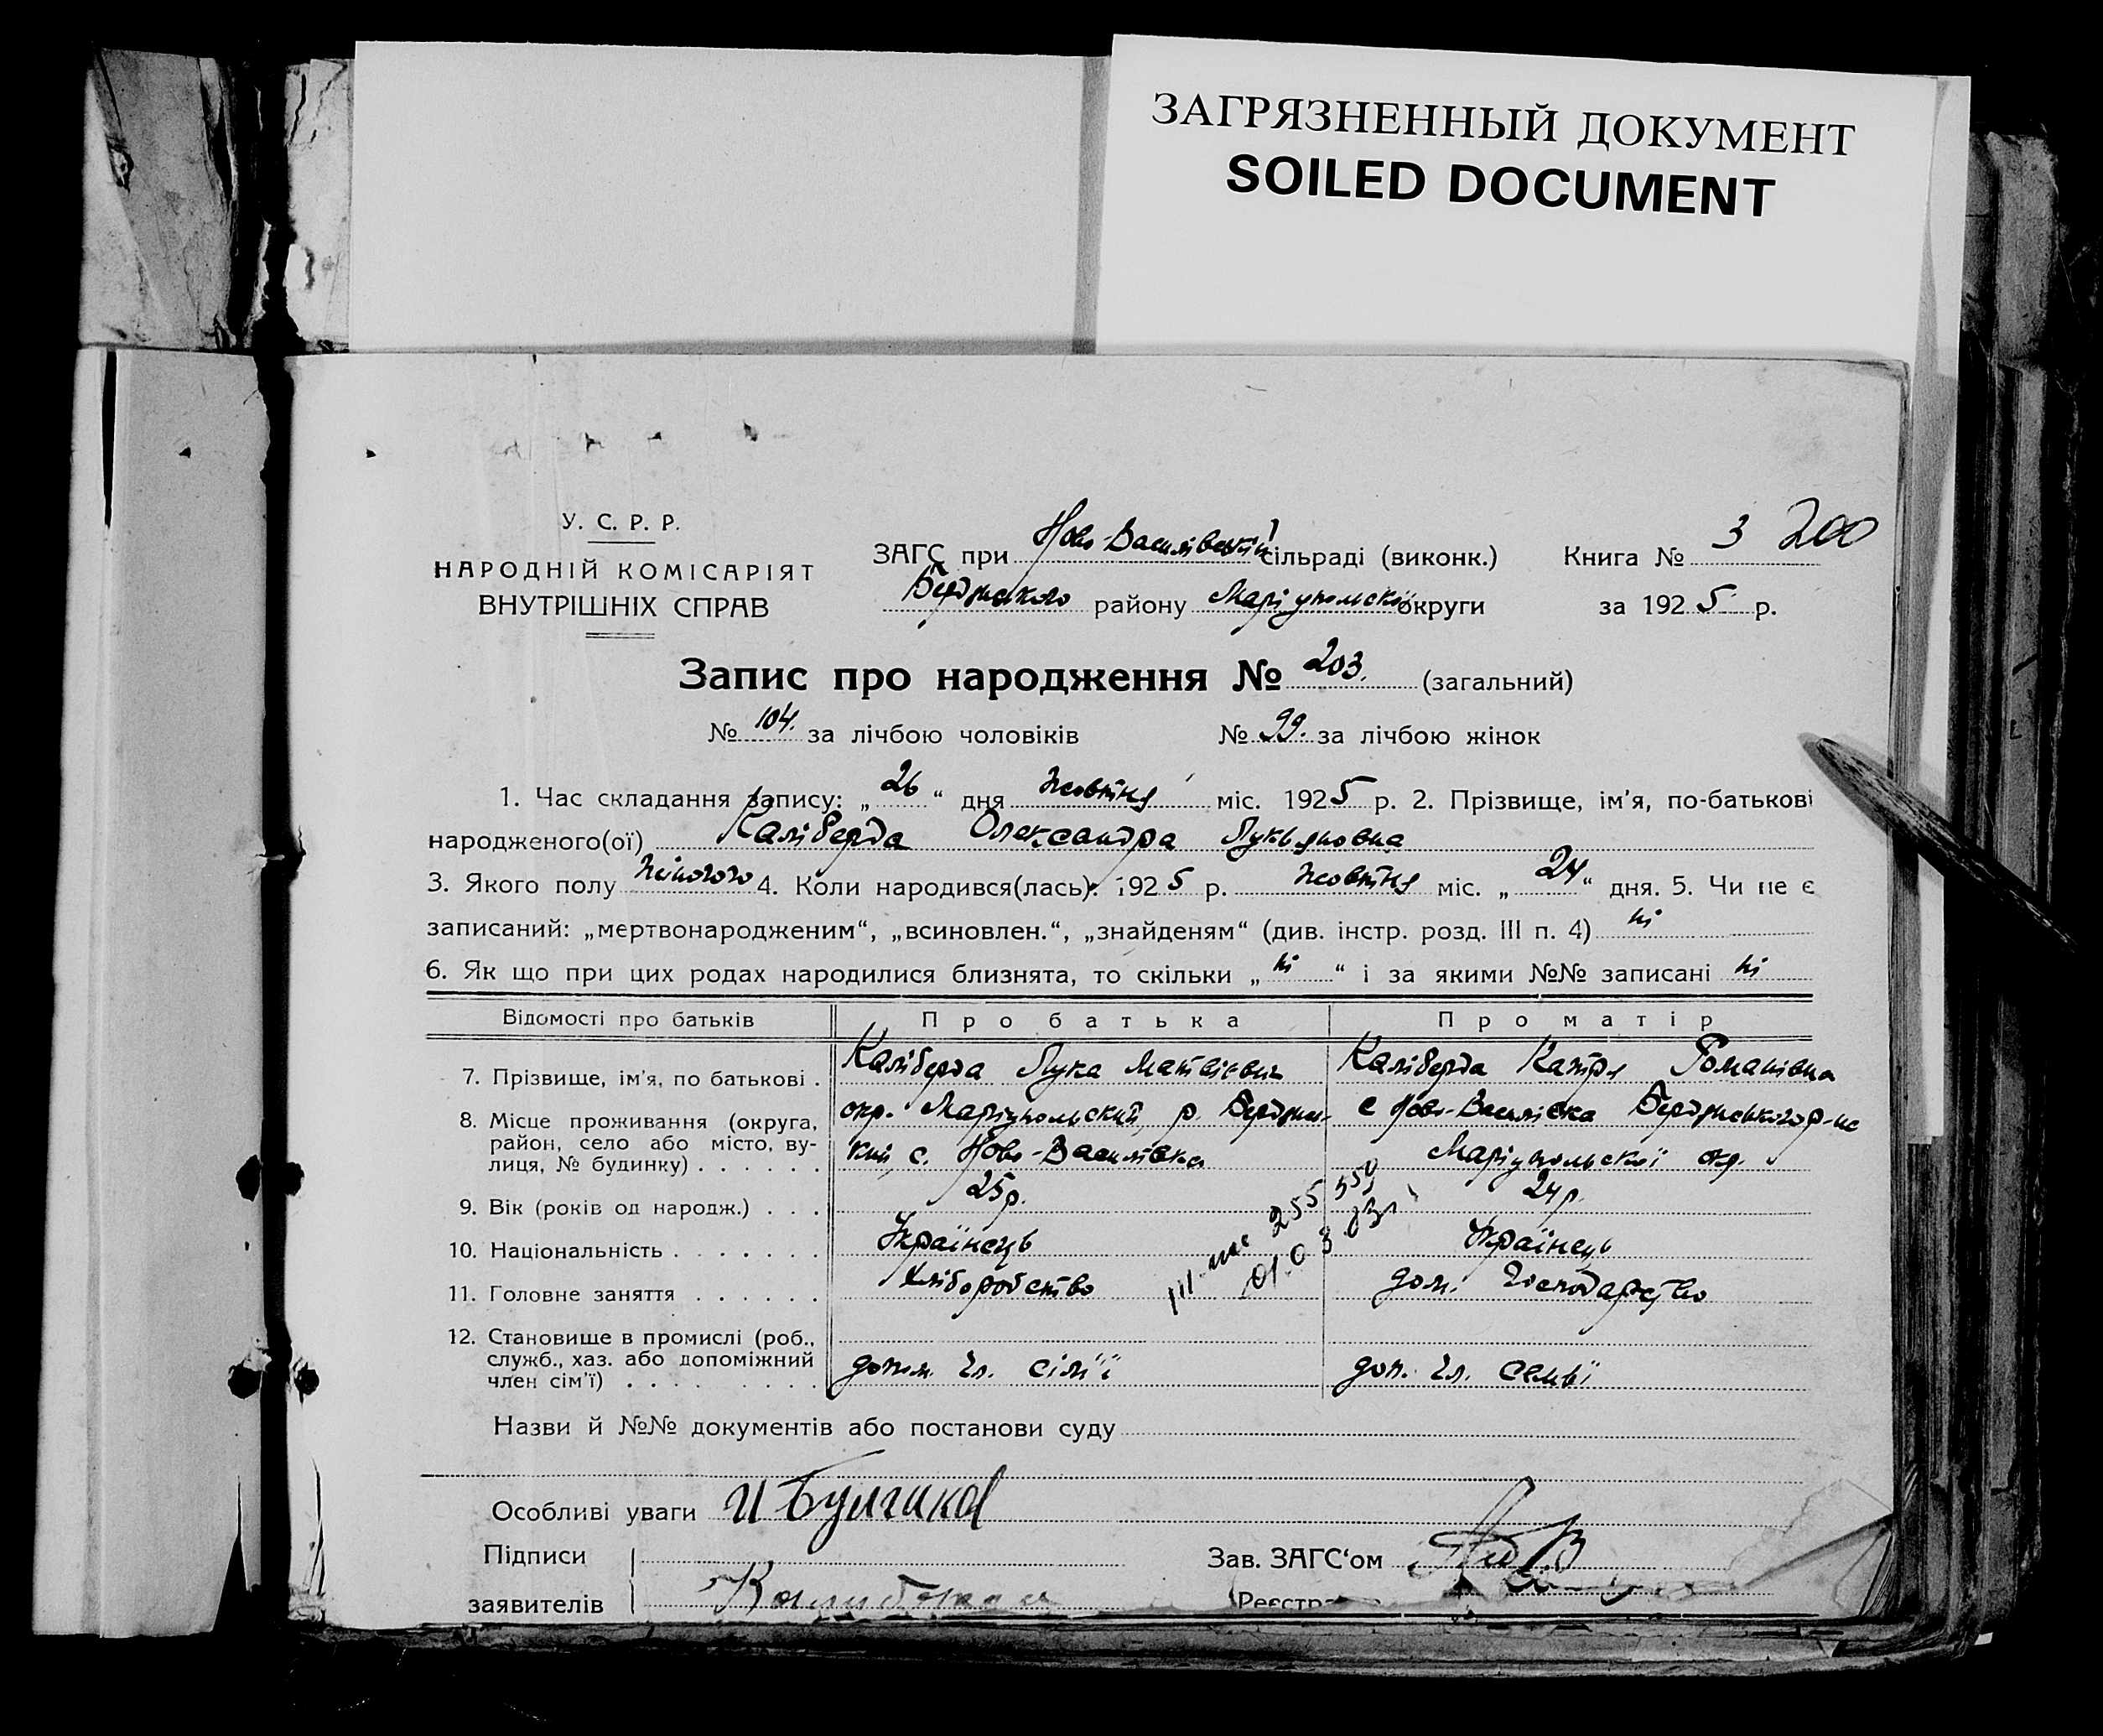 ЗАГРЯЗНЕННЫЙ ДОКУМЕНТ
SOILED DOCUMENT
У. С. Р. Р.
НАРОДНІЙ КОМІСАРІЯТ
ВНУТРІШНІХ СПРАВ
ЗАГС при Ново-Василівській сільраді (виконк.)
Бердянського району Маріупольської округи
Книга № 3 200
за 1925 р.
Запис про народження № 203. (загальний)
№ 104. за лічбою чоловіків № 99. за лічбою жінок
1. Час складання запису: „26“ дня Жовтня міс. 1925 р. 2. Прізвище, ім'я, по-батькові
народженого(ої) Каліберда Олександра Лукьяновна
3. Якого полу жіночого 4. Коли народився(лась): 1925 р. Жовтня міс. „24“ дня. 5. Чи не є
записаний: „мертвонародженим“, „всиновлен.“, „знайденям“ (див. інстр. розд. III п. 4) ні
6. Як що при цих родах народилися близнята, то скільки „ні“ і за якими №№ записані ні
Відомості про батьків Про батька Про матір
7. Прізвище, ім'я, по батькові . Каліберда Лука Матвієвич Каліберда Катря Романівна
8. Місце проживання (округа, район, село або місто, вулиця, № будинку) . . . . . .
окр. Маріупольский, р. Бердян-
кий с. Ново-Василівка
с Ново-Василівка Бердянського р-не
Маріупольської окр.
9. Вік (років од народж.) . . . 25 р. 24 р.
10. Національність . . . . . . . Українець Українець
11. Головне заняття . . . . . . Хліборобство дом. Господарство
255 550
01.03.83
12. Становище в промислі (роб., служб., хаз. або допоміжний член сім'ї) . . . . . . . .
допом. чл. сім'ї доп. чл. семьї
Назви й №№ документів або постанови суду
Особливі уваги
Підписи
заявителів
Зав. ЗАГС'ом